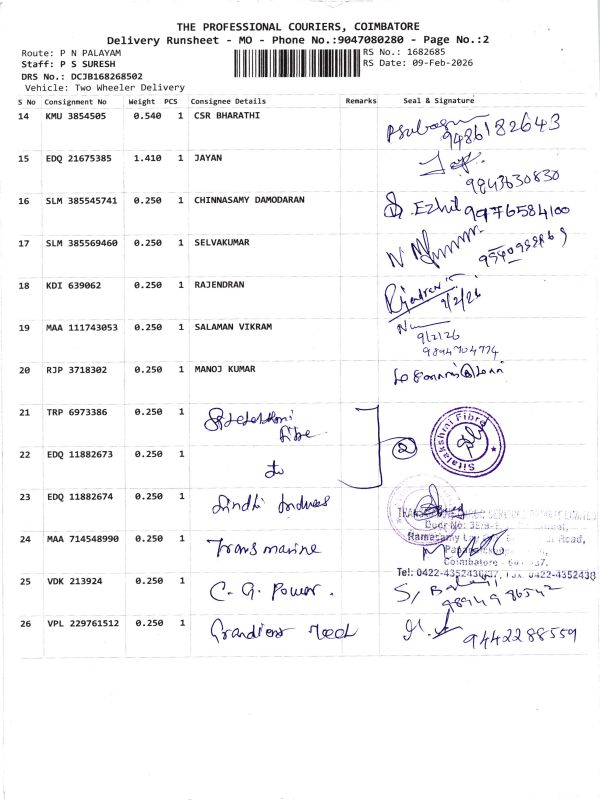 THE PROFESSIONAL COURIERS, COIMBATORE
Delivery Runsheet - MO - Phone No.:9047080280 - Page No.:2
Route: P N PALAYAM
RS No.: 1682685
Staff: P S SURESH
RS Date: 09-Feb-2026
DRS No.: DCJB168268502
Vehicle: Two Wheeler Delivery
S No Consignment No Weight PCS Consignee Details Remarks Seal & Signature
14 KMU 3854505 0.540 1 CSR BHARATHI
9486182643
15 EDQ 21675385 1.410 1 JAYAN
9843630830
16 SLM 385545741 0.250 1 CHINNASAMY DAMODARAN
Ezhil 9976584100
17 SLM 385569460 0.250 1 SELVAKUMAR
18 KDI 639062 0.250 1 RAJENDRAN
Rajendran
9/2/26
19 MAA 111743053 0.250 1 SALAMAN VIKRAM
9/2/26
9894704774
20 RJP 3718302 0.250 1 MANOJ KUMAR
21 TRP 6973386 0.250 1
Sitalakshmi Fibre
2
22 EDQ 11882673 0.250 1
do
23 EDQ 11882674 0.250 1
Coimbatore
Tel: 0422-4352438
24 MAA 714548990 0.250 1 Trans marine
25 VDK 213924 0.250 1 C. G. Power.
26 VPL 229761512 0.250 1
9442288559